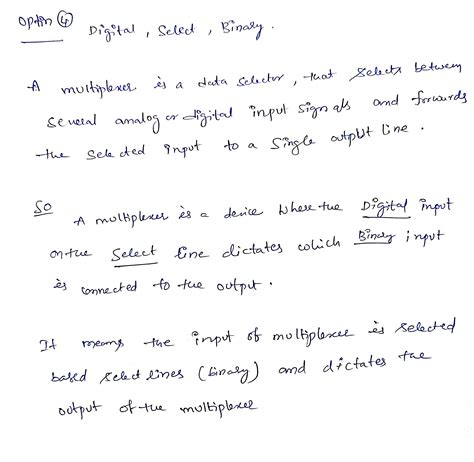 Option ④ Digital, Select, Binary.
A multiplexer is a data selector, that selects between
several analog or digital input signals and forwards
the selected input to a single output line.
So A multiplexer is a device where the Digital input
on the Select line dictates which Binary input
is connected to the output.
It means the input of multiplexer is selected
based select lines (binary) and dictates the
output of the multiplexer